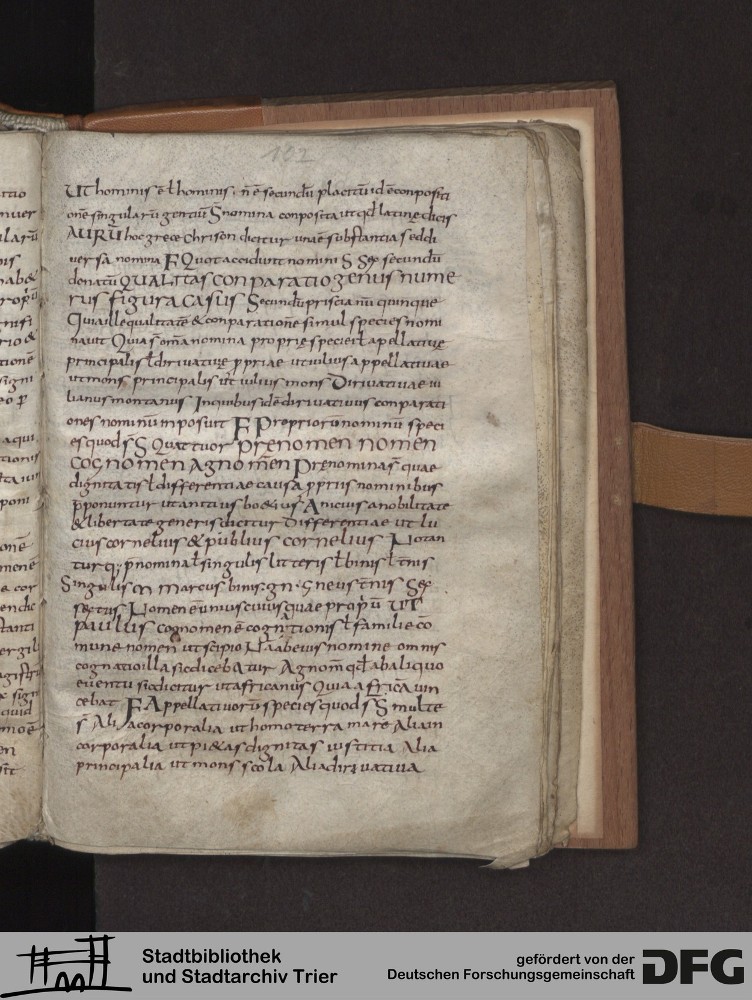 102
Ut hominis ē ł hominis · n̄ ē secundū placitū id ē conpositi
one singularū gentiū S̄ nomina conposita ut qđ latine dicis
AURŪ hoc grece chrison dicitur una ē substantia sed di
versa nomina F Quot accidunt nomini S̄ Sex secundū
donatū QUALITAS CONPARATIO GENUS NUME
RUS FIGURA CASUS Secundū priscianū quinque
Quia ille qualitatē & conparationē simul species nomi
navit Quia s̄ om̄a nomina proprię speciei ł apellativę
principalis ł dirivativę ꝓpriae ut iulius appellativae
ut mons principalis ut iulius mons Dirivativae iu
lianus montanus In quibusdē dirivativis conparati
ones nominū inposuit F Propriorū nominū speci
es quod s̄ S̄ Quattuor PRENOMEN NOMEN
COGNOMEN AGNOMEN Prenomina s̄ quae
dignitatis ł differentiae causa ꝓpriis nominibus
p̄ponuntur ut antius boetius Anicius a nobilitate
& libertate generis dicitur Differentiae ut lu
cius cornelius & publius cornelius Notan
tur q; p̄nomina ł singulis litteris ł binis ł t̄nis
Singulis m̄ marcus binis · gn · gneus t̄nis Sex
sextus Nomen ē unius cuiusquae propriū UT
PAULUS cognomen ē cognationis ł familie co
mune nomen ut scipio Naabeius nomine omnis
cognatio illa sic dicebatur Agnom̄ qđ ab aliquo
eventu sic dicitur ut africanus Quia africā vin
cebat F Appellativorū species quod s̄ S̄ multe
s̄ Alia corporalia ut homo terra mare Alia in
corporalia ut pi&as dignitas iustitia Alia
principalia ut mons scola Alia dirivativa
Stadtbibliothek
und Stadtarchiv Trier
gefördert von der
Deutschen Forschungsgemeinschaft
DFG